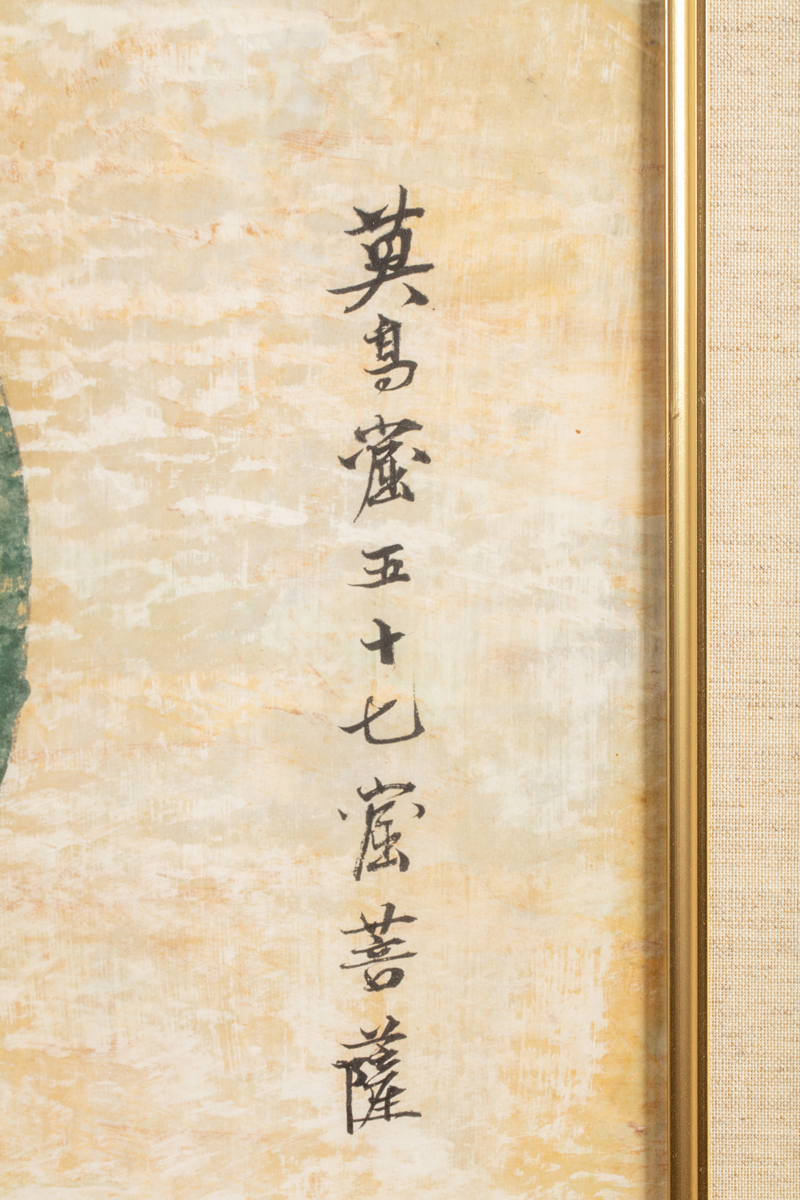 莫髙窟五十七窟菩薩